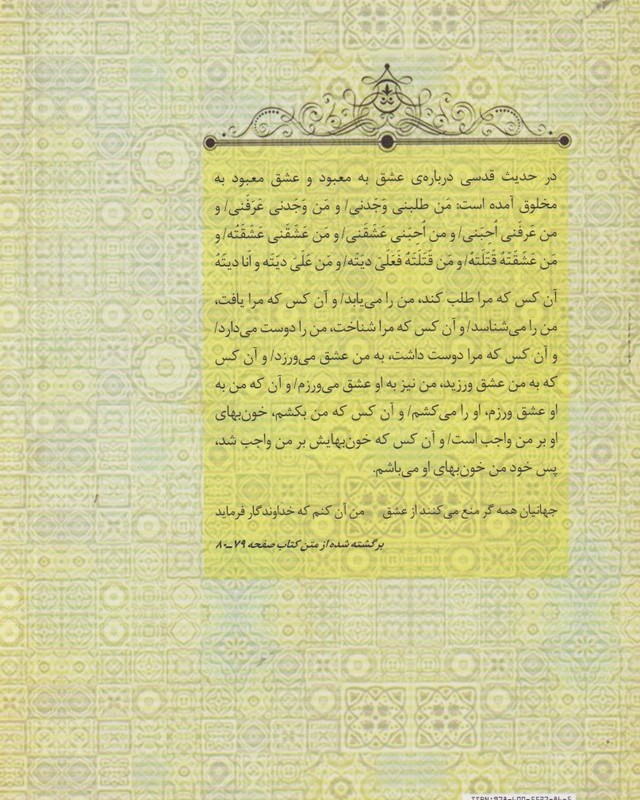 در حدیث قدسی درباره‌ی عشق به معبود و عشق معبود به
مخلوق آمده است: مَن طلبنی وَجَدنی/ و مَن وَجَدنی عَرَفنی/ و
من عَرفنی اُحبَنی/ و من اُحبَنی عَشَقنی/ و مَن عَشَقنی عَشَقتَه/ و
مَن عَشَقتَهُ قَتَلتَهُ/ و مَن قَتَلتَهُ فَعَلَیَ دیَتَه/ و مَن عَلَیَ دیَتَه و انا دیتَهُ
آن کس که مرا طلب کند، من را می‌یابد/ و آن کس که مرا یافت،
من را می‌شناسد/ و آن کس که مرا شناخت، من را دوست می‌دارد/
و آن کس که مرا دوست داشت، به من عشق می‌ورزد/ و آن کس
که به من عشق ورزید، من نیز به او عشق می‌ورزم/ و آن که من به
او عشق ورزم، او را می‌کشم/ و آن کس که من بکشم، خون‌بهای
او بر من واجب است/ و آن کس که خون‌بهایش بر من واجب شد،
پس خود من خون‌بهای او می‌باشم.
جهانیان همه گر منع می‌کنند از عشق من آن کنم که خداوندگار فرماید
برگشته شده از متن کتاب صفحه ۷۹-۸۰